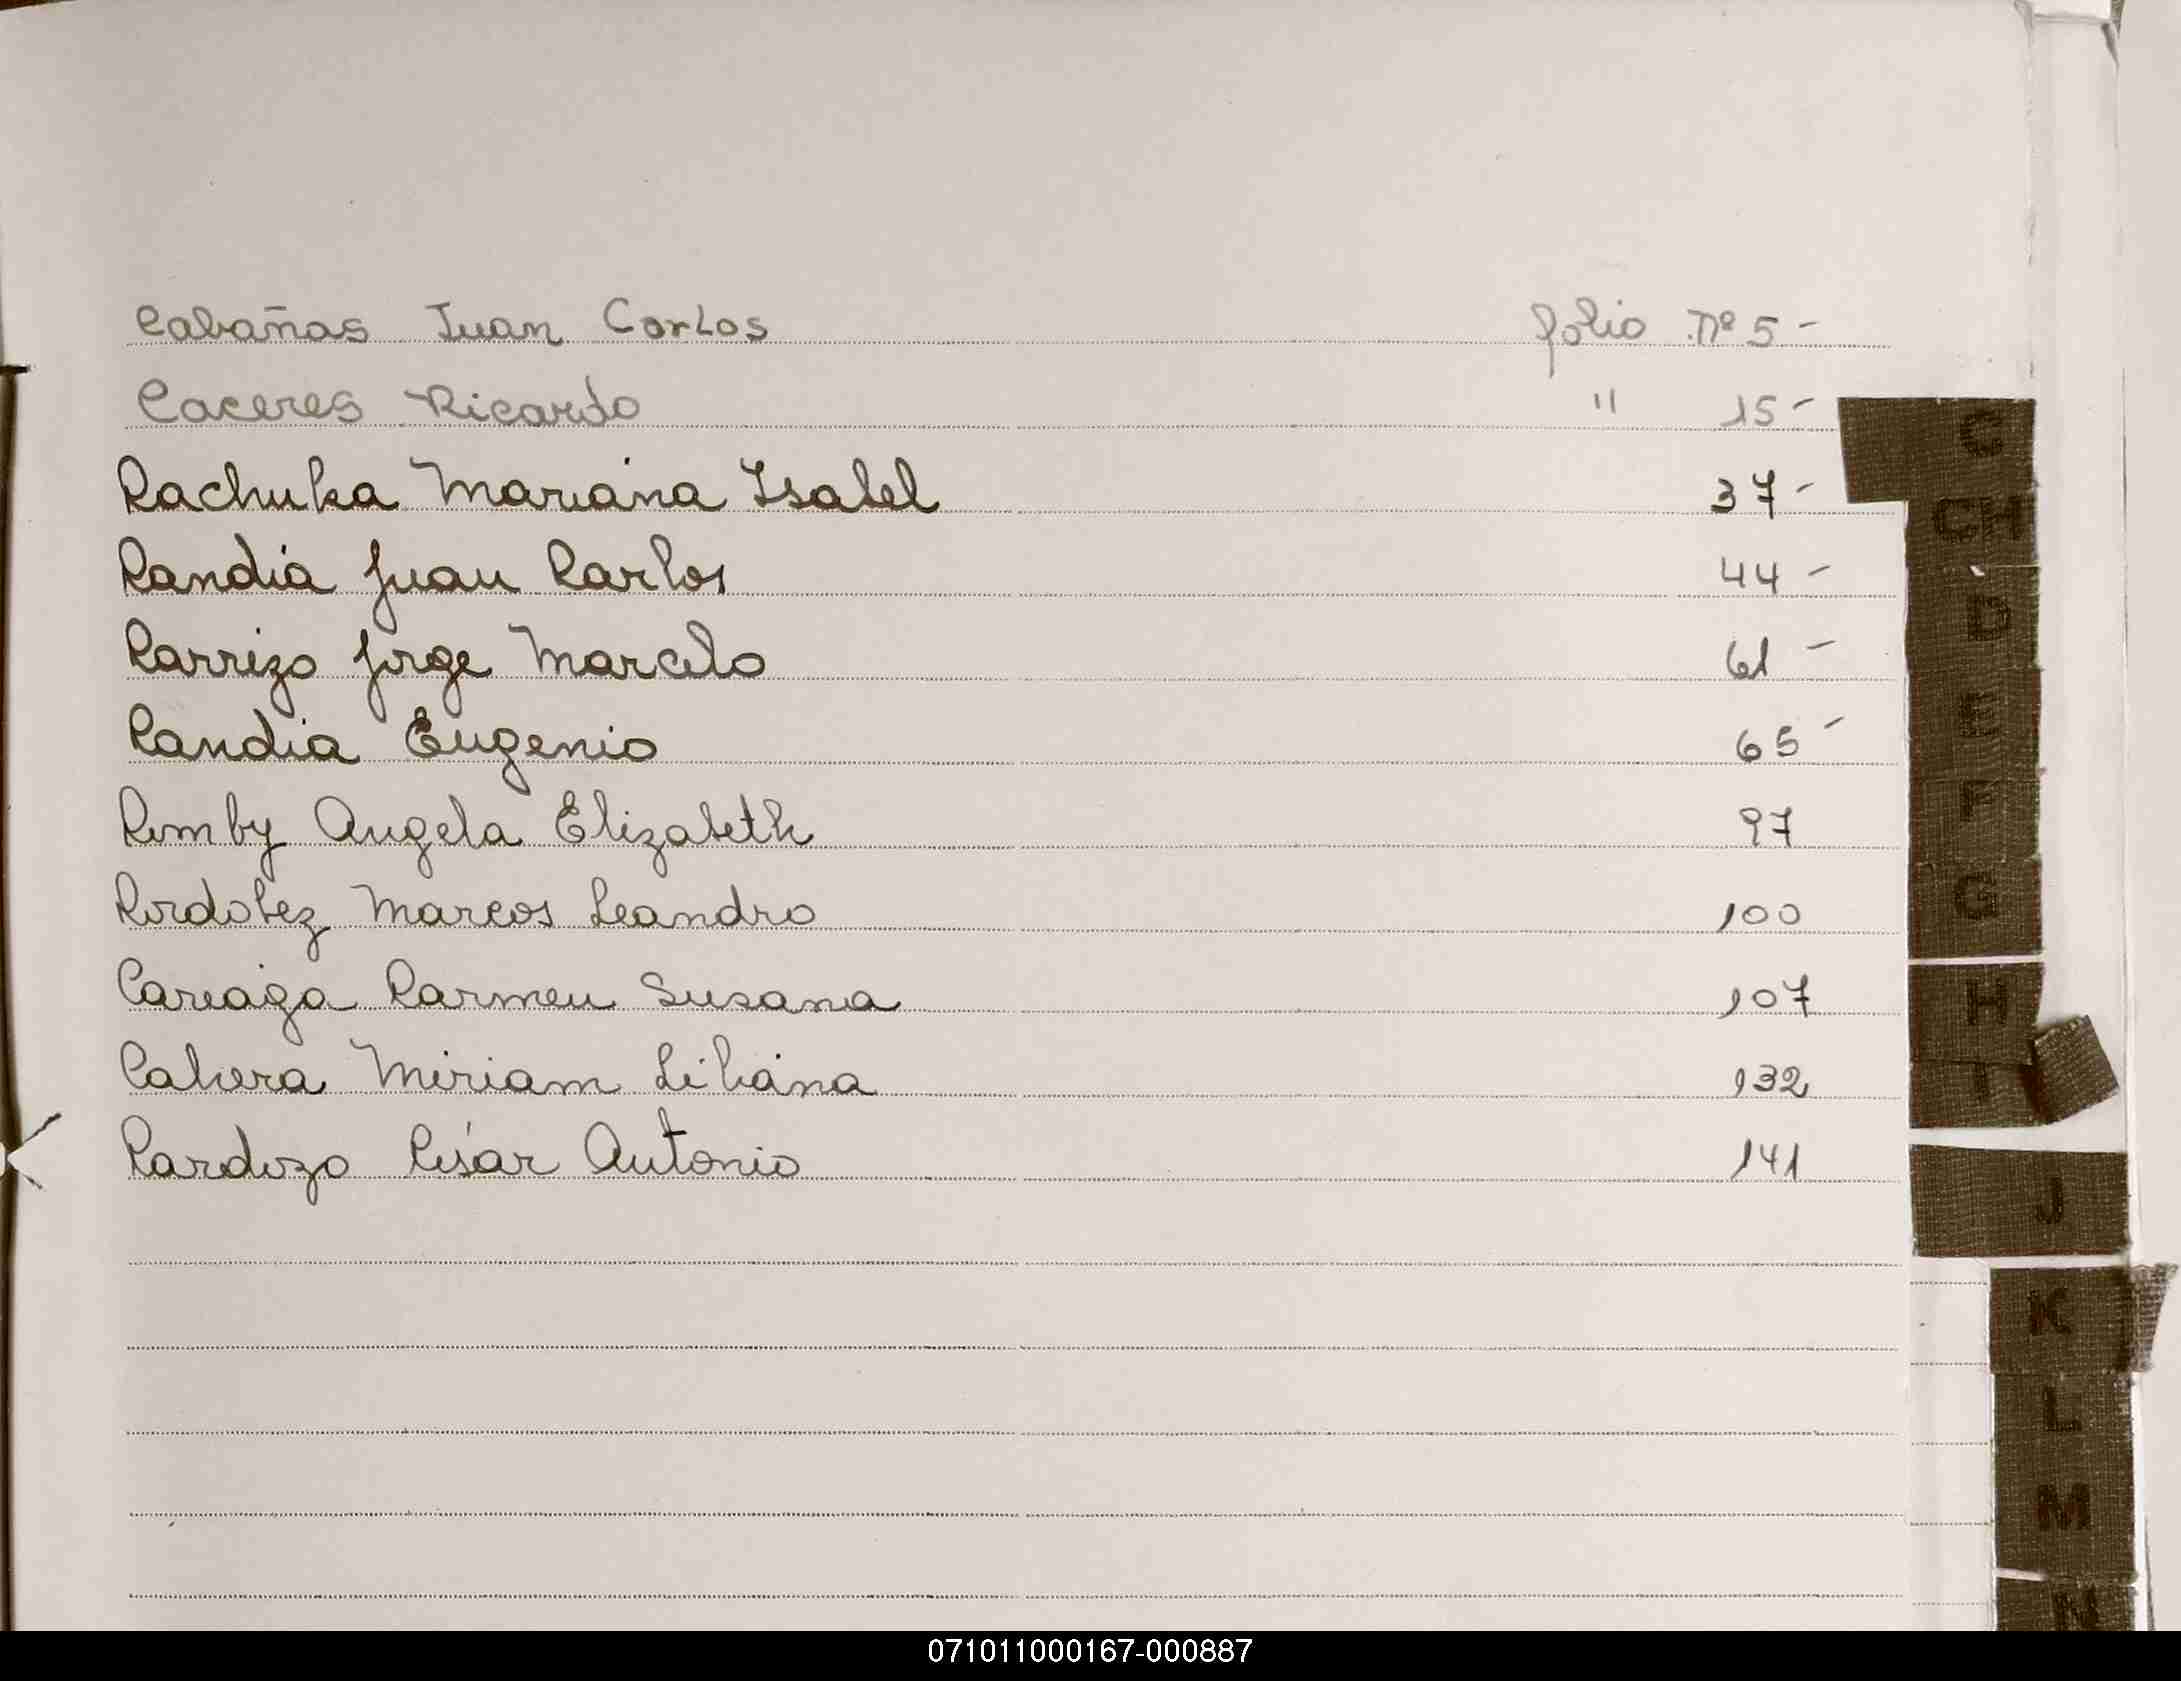 Cabañas Juan Carlos folio Nº 5 -
Caceres Ricardo " 15 -
Cachuka Mariana Isabel 37 -
Candia Juan Carlos 44 -
Carrizo Jorge Marcelo 61 -
Candia Eugenio 65 -
Comby Angela Elizabeth 97
Cordobez Marcos Leandro 100
Careaga Carmen Susana 107
Miriam Liliana 132
Cardozo César Antonio 141
C
CH
D
E
F
G
H
I
J
K
L
M
N
071011000167-000887